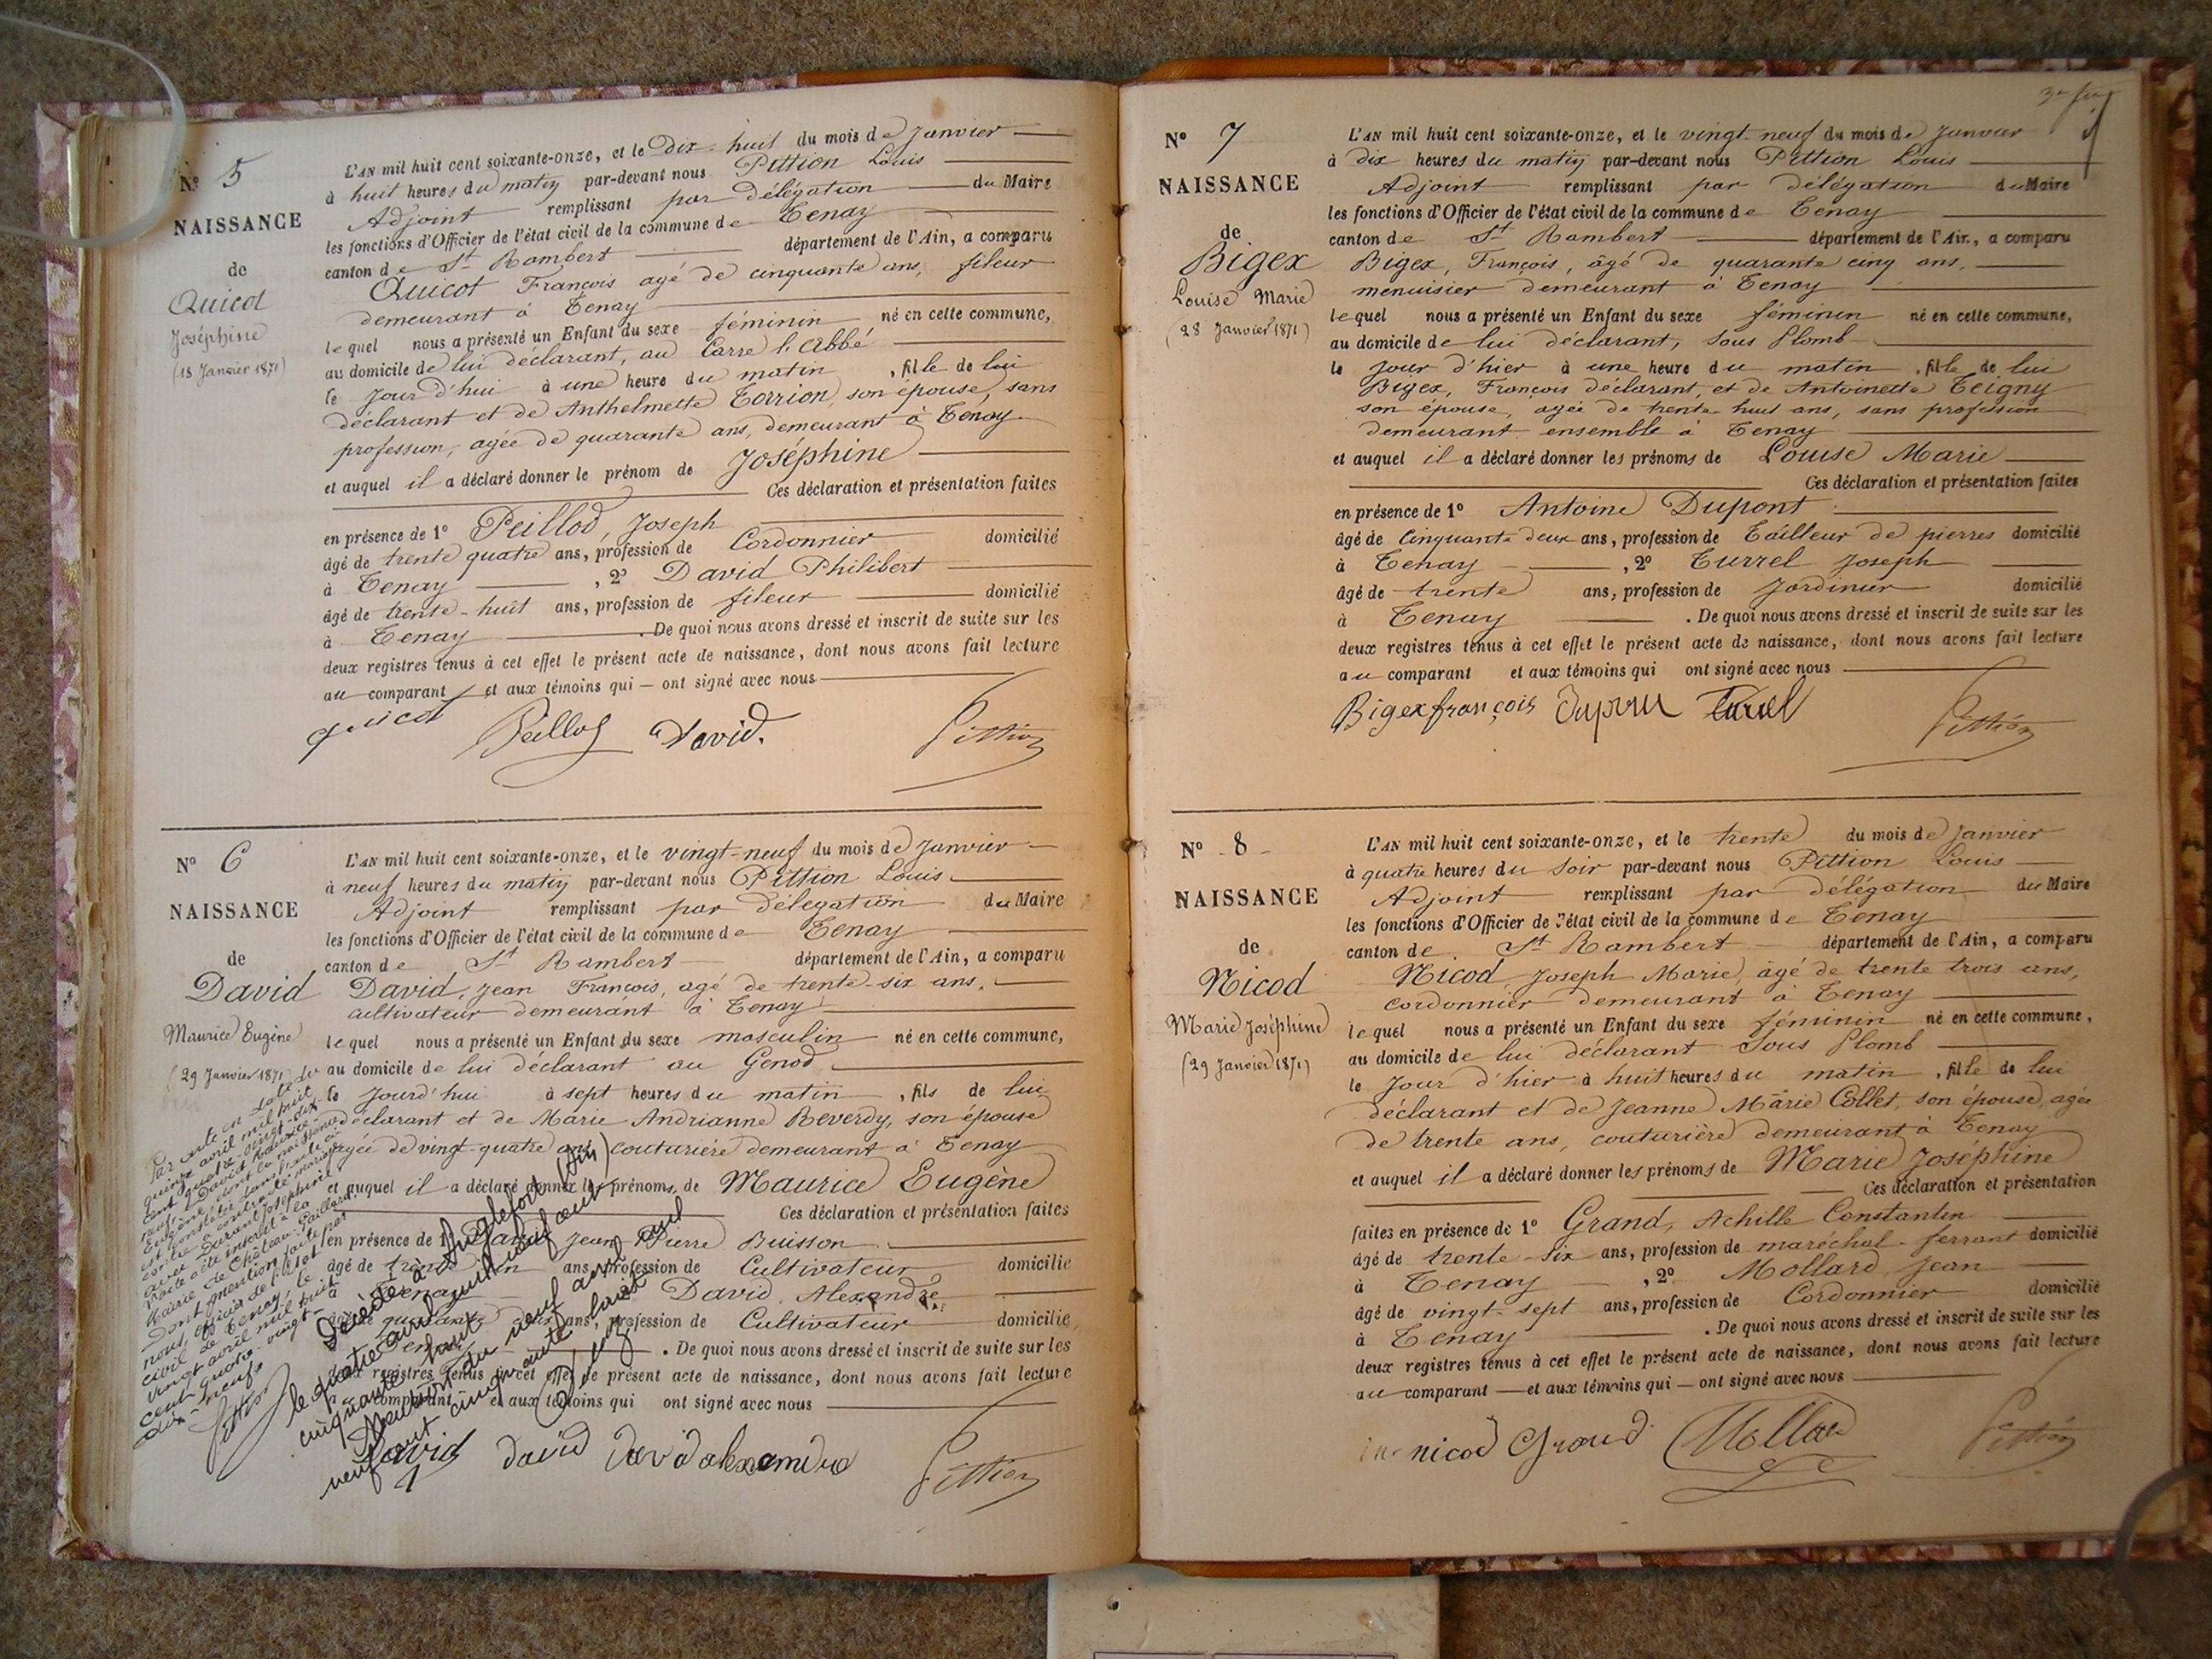 Nº 5
NAISSANCE
de
Quicot
Joséphine
(18 Janvier 1871)
L'AN mil huit cent soixante-onze, et le Dix-huit du mois de Janvier
à huit heures du matin par-devant nous Pittion Louis
Adjoint remplissant par délégation du Maire
les fonctions d'Officier de l'état civil de la commune de Tenay
canton de St Rambert département de l'Ain, a comparu
Quicot François agé de cinquante ans, fileur
demeurant à Tenay
lequel nous a présenté un Enfant du sexe féminin né en cette commune,
au domicile de lui déclarant, au Carre l'Abbé
le Jour d'hui à une heure du matin, fille de lui
déclarant et de Anthelmette Torrion, son épouse, sans
profession, agée de quarante ans, demeurant à Tenay
et auquel il a déclaré donner le prénom de Joséphine
Ces déclaration et présentation faites
en présence de 1º Peillod, Joseph
âgé de trente quatre ans, profession de Cordonnier domicilié
à Tenay, 2º David Philibert
âgé de trente-huit ans, profession de fileur domicilié
à Tenay. De quoi nous avons dressé et inscrit de suite sur les
deux registres tenus à cet effet le présent acte de naissance, dont nous avons fait lecture
au comparant et aux témoins qui ont signé avec nous
quicot Peillod David. Pittion
Nº 6
NAISSANCE
de
David
Maurice Eugène
(29 Janvier 1871)
L'AN mil huit cent soixante-onze, et le vingt-neuf du mois de Janvier
à neuf heures du matin par-devant nous Pittion Louis
Adjoint remplissant par délégation du Maire
les fonctions d'Officier de l'état civil de la commune de Tenay
canton de St Rambert département de l'Ain, a comparu
David, Jean François, agé de trente-six ans,
cultivateur demeurant à Tenay
lequel nous a présenté un Enfant du sexe masculin né en cette commune,
au domicile de lui déclarant au Genod
le Jourd'hui à sept heures du matin, fils de lui
déclarant et de Marie Andrianne Reverdy, son épouse
agée de vingt-quatre ans, couturière demeurant à Tenay
et auquel il a déclaré donner les prénoms de Maurice Eugène
Ces déclaration et présentation faites
en présence de 1º David Jean Pierre Buisson
âgé de trente ans, profession de Cultivateur domicilié
à Tenay David, Alexandre
âgé de quarante ans, profession de Cultivateur domicilié
à Tenay. De quoi nous avons dressé et inscrit de suite sur les
deux registres tenus à cet effet le présent acte de naissance, dont nous avons fait lecture
au comparant et aux témoins qui ont signé avec nous
David david david alexandre Pittion
Par acte en date du
quinze avril mil huit
cent quatre-vingt-dix
neuf, David Maurice
Eugène dont la naissance
est constatée dans l'acte ci-
contre a contracté mariage
avec Durant Joséphine
l'acte a été inscrit à la
Mairie de Château-Gaillard
Dont mention faite par
nous, officier de l'état
civil de Tenay, le
vingt avril mil huit
cent quatre-vingt-
dix-neuf
Pittion
Décédé à Anglefort (Ain)
le quatre avril mil neuf cent
cinquante huit
Mention du neuf avril mil
neuf cent cinquante huit
Nº 7
NAISSANCE
de
Bigex
Louise Marie
(28 Janvier 1871)
L'AN mil huit cent soixante-onze, et le vingt-neuf du mois de Janvier
à dix heures du matin par-devant nous Pittion Louis
Adjoint remplissant par délégation du Maire
les fonctions d'Officier de l'état civil de la commune de Tenay
canton de St Rambert département de l'Ain, a comparu
Bigex, François, âgé de quarante cinq ans,
menuisier demeurant à Tenay
lequel nous a présenté un Enfant du sexe féminin né en cette commune,
au domicile de lui déclarant, sous Plomb
le Jour d'hier à une heure du matin, fille de lui
Bigex, François déclarant, et de Antoinette Teigny
son épouse, agée de trente-huit ans, sans profession
demeurant ensemble à Tenay
et auquel il a déclaré donner les prénoms de Louise Marie
Ces déclaration et présentation faites
en présence de 1º Antoine Dupont
âgé de Cinquante deux ans, profession de Tailleur de pierres domicilié
à Tenay, 2º Turrel Joseph
âgé de trente ans, profession de Jardinier domicilié
à Tenay. De quoi nous avons dressé et inscrit de suite sur les
deux registres tenus à cet effet le présent acte de naissance, dont nous avons fait lecture
au comparant et aux témoins qui ont signé avec nous
Bigex françois Dupont Turrel Pittion
Nº 8
NAISSANCE
de
Nicod
Marie Joséphine
(29 Janvier 1871)
L'AN mil huit cent soixante-onze, et le trente du mois de Janvier
à quatre heures du soir par-devant nous Pittion Louis
Adjoint remplissant par délégation du Maire
les fonctions d'Officier de l'état civil de la commune de Tenay
canton de St Rambert département de l'Ain, a comparu
Nicod, Joseph Marie, âgé de trente trois ans,
cordonnier demeurant à Tenay
lequel nous a présenté un Enfant du sexe féminin né en cette commune,
au domicile de lui déclarant Sous Plomb
le Jour d'hier à huit heures du matin, fille de lui
déclarant et de Jeanne Marie Collet, son épouse, agée
de trente ans, couturière demeurant à Tenay
et auquel il a déclaré donner les prénoms de Marie Joséphine
Ces déclaration et présentation
faites en présence de 1º Grand, Achille Constantin
âgé de trente-six ans, profession de maréchal-ferrant domicilié
à Tenay, 2º Mollard, Jean
âgé de vingt-sept ans, profession de Cordonnier domicilié
à Tenay. De quoi nous avons dressé et inscrit de suite sur les
deux registres tenus à cet effet le présent acte de naissance, dont nous avons fait lecture
au comparant et aux témoins qui ont signé avec nous
nicod Grand Mollard Pittion